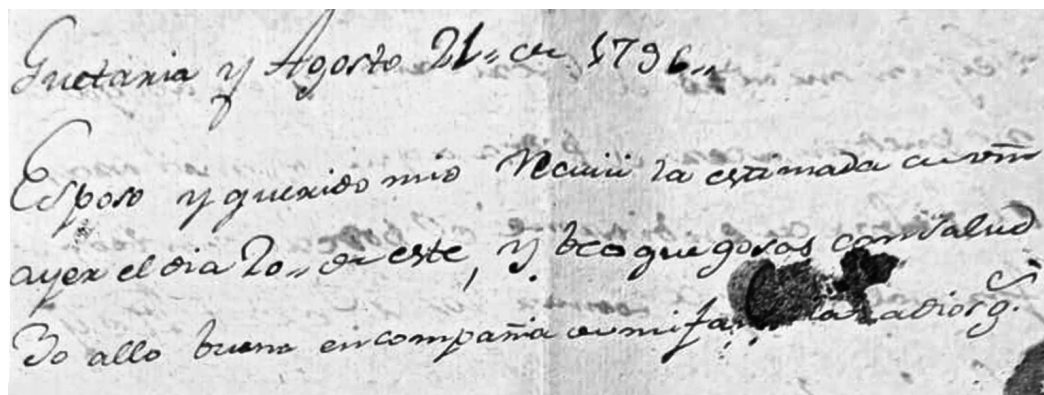 Guetaria y Agosto 21,, de 1796,,
Esposo y querido mio Reciui la estimada de
ayer el dia 20,, de este, y beo que gosas con salud
Yo allo buena en compañia de mi a Dios g.